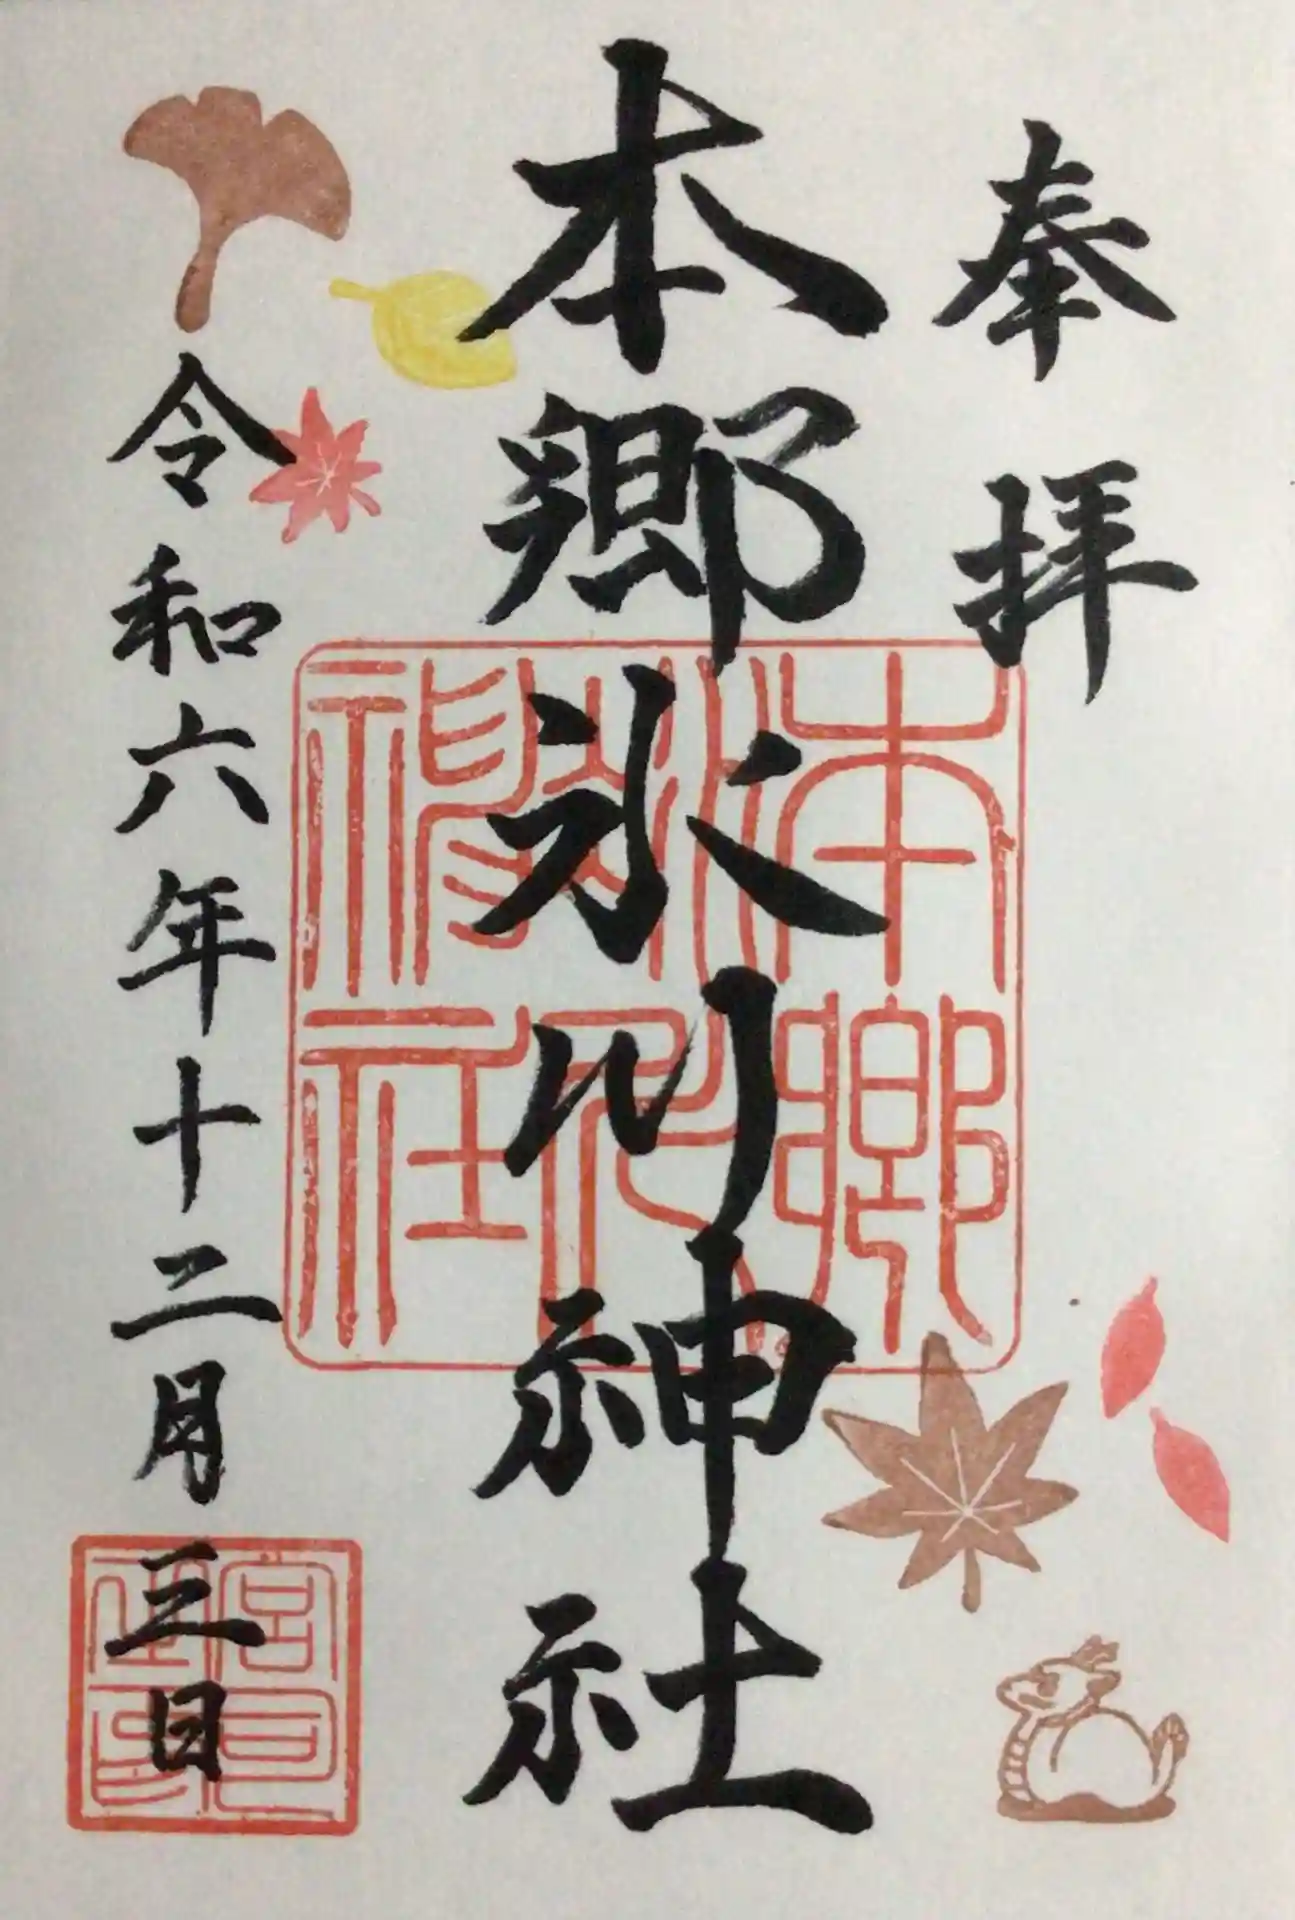 奉拝
本郷氷川神社
本郷
氷川
神社
令和六年十二月三日
宮司
之印